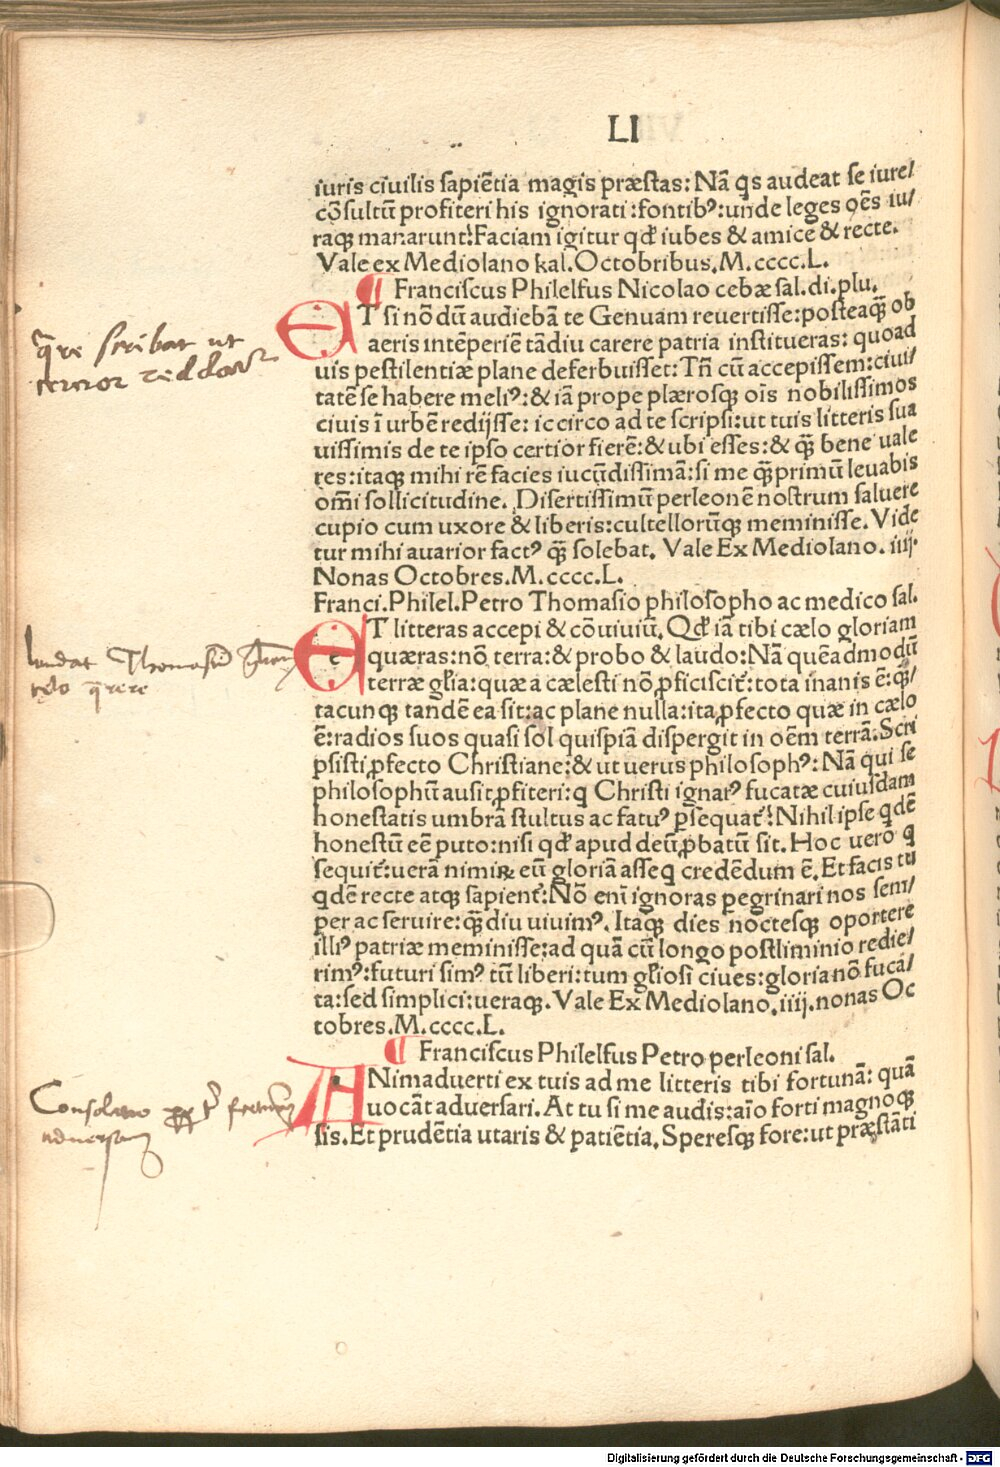 LI
iuris ciuilis sapiẽtia magis præstas: Nã q̃s audeat se iure/
cõsultũ profiteri his ignorati: fontibꝰ: unde leges ꝯẽs iu/
raqꝫ manarunt? Faciam igitur qđ iubes & amice & recte.
Vale ex Mediolano kal. Octobribus. M.cccc.L.
¶ Franciscus Philelfus Nicolao cebæ sal. di. plu.
ET si nõdũ audiebã te Genuam reuertisse: posteaqꝫ̃ ob
aeris intẽperiẽ tãdiu carere patria institueras: quoad
uis pestilentiæ plane deferbuisset: Tñ cũ accepissem: ciui/
tatẽ se habere meliꝰ: & iã prope plærosqꝫ oĩs nobilissimos
ciuis ĩ urbẽ redijsse: iccirco ad te scripsi: ut tuis litteris sua
uissimis de te ipso certior fierẽ: & ubi esses: & qꝫ̃ bene uale
res: itaqꝫ mihi rẽ facies iucũdissimã: si me qꝫ̃primũ leuabis
om̃i sollicitudine. Disertissimũ perleonẽ nostrum saluere
cupio cum uxore & liberis: cultellorũqꝫ meminisse. Vide
tur mihi auarior factꝰ qꝫ̃ solebat. Vale Ex Mediolano. iiij.
Nonas Octobres. M.cccc.L.
Franci. Philel. Petro Thomasio philosopho ac medico sal.
ET litteras accepi & cõuiuiũ. Qđ iã tibi cælo gloriam
quæras: nõ terra: & probo & laudo: Nã quẽadmodũ
terræ gl̃ia: quæ a cælesti nõ ꝓficiscit̃: tota inanis ẽ: qꝫ̃/
tacunqꝫ tandẽ ea sit: ac plane nulla: ita ꝓfecto quæ in cælo
ẽ: radios suos quasi sol quispiã dispergit in oẽm terrã. Scri
psisti ꝓfecto Christiane: & ut uerus philosophꝰ: Nã qui se
philosophũ ausit ꝓfiteri: q Christi ignarꝰ fucatæ cuiusdam
honestatis umbrã stultus ac fatuꝰ ꝑsequat̃? Nihil ipse qdẽ
honestũ eẽ puto: nisi qđ apud deũ ꝓbatũ sit. Hoc uero q
sequit̃: uerã nimiꝝ eũ gloriã asseq credẽdum ẽ. Et facis tu
qdẽ recte atqꝫ sapient̃: Nõ enĩ ignoras pegrinari nos sem/
per ac seruire: qꝫ̃diu uiuimꝰ. Itaqꝫ dies noctesqꝫ oportere
illiꝰ patriæ meminisse: ad quã cũ longo postliminio redie/
rimꝰ: futuri simꝰ tũ liberi: tum gl̃iosi ciues: gloria nõ fuca/
ta: sed simplici: ueraqꝫ. Vale Ex Mediolano. iiij. nonas Oc
tobres. M.cccc.L.
¶ Franciscus Philelfus Petro perleoni sal.
ANimaduerti ex tuis ad me litteris tibi fortunã: quã
uocãt aduersari. At tu si me audis: aĩo forti magnoqꝫ
sis. Et prudẽtia utaris & patiẽtia. Speresqꝫ fore: ut præstãti
scribat ut
laudat Thomasiũ
celo q̃rere
Consolatio
aduersam
Digitalisierung gefördert durch die Deutsche Forschungsgemeinschaft - DFG